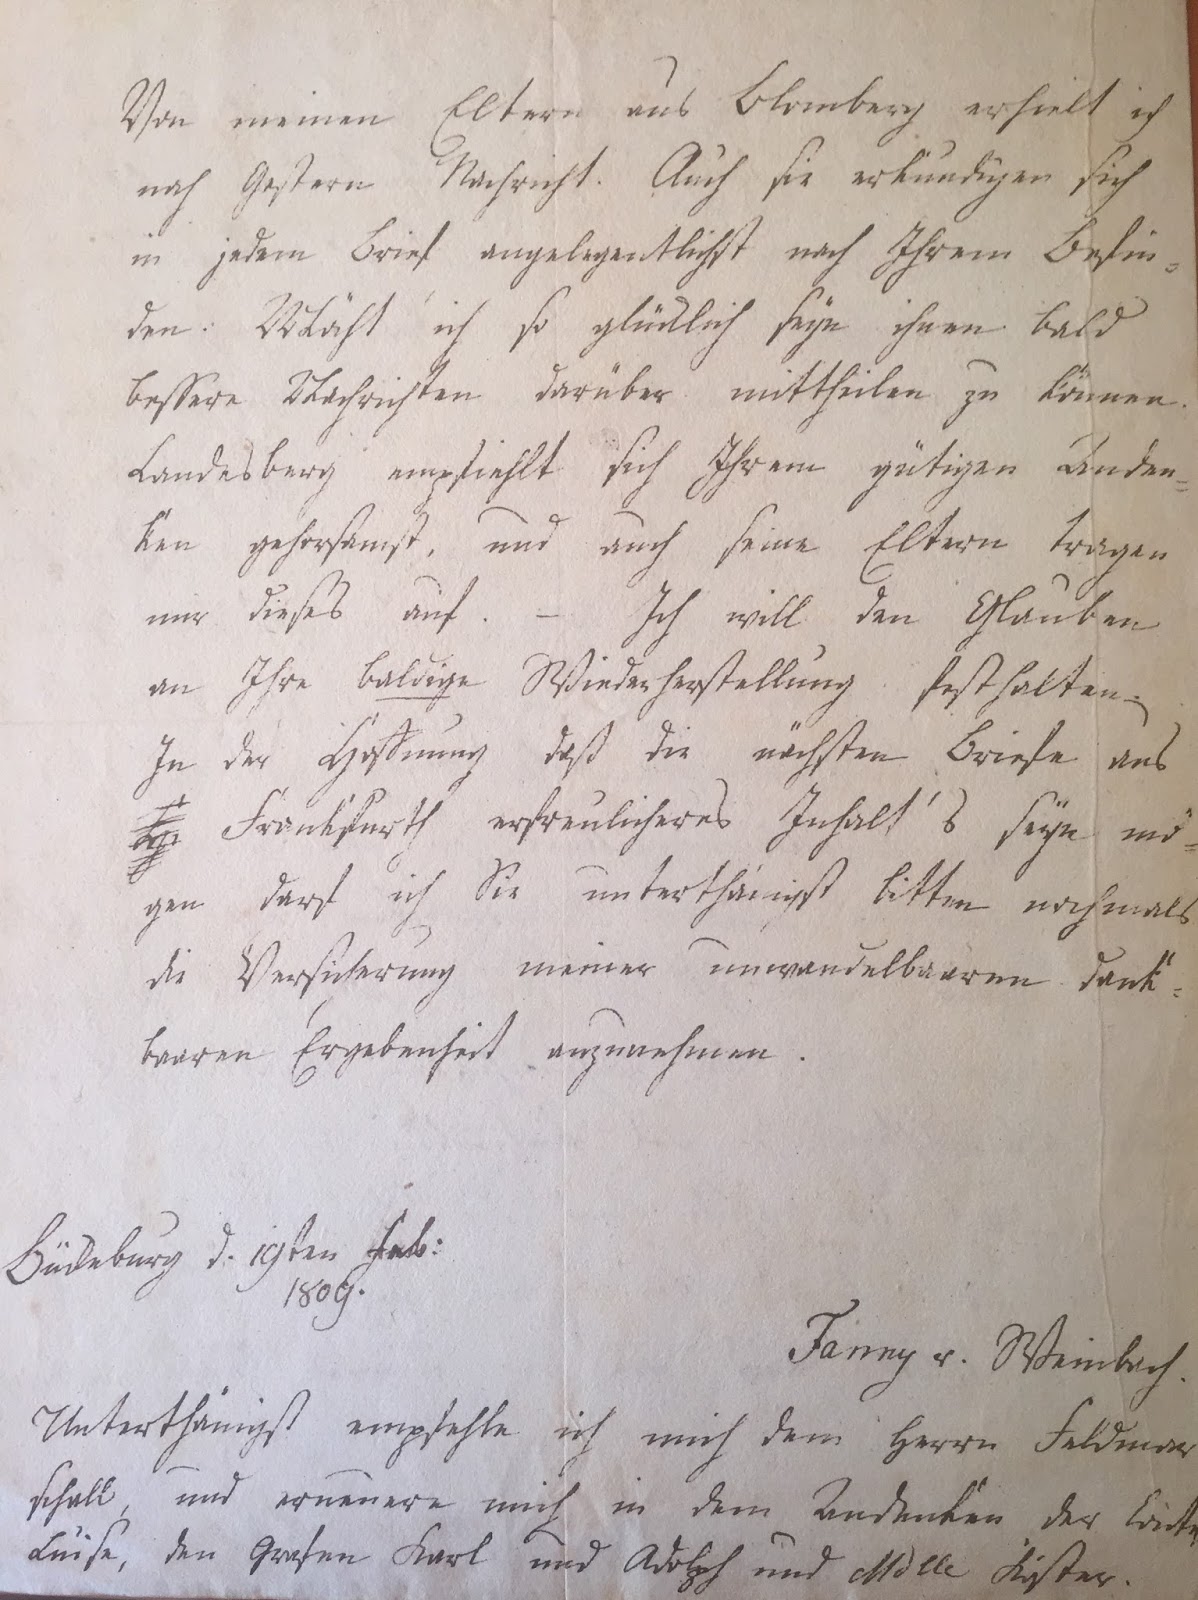 Von meinen Eltern aus Blomberg erhielt ich
noch Gestern Nachricht. Auch sie erkundigen sich
in jedem Brief angelegentlichst nach Ihrem Befin=
den. Möcht' ich so glücklich seyn ihnen bald
bessere Nachrichten darüber mittheilen zu können.
Landesberg empfiehlt sich Ihrem gütigen Anden=
ken gehorsamst, und auch seine Eltern tragen
mir dieses auf. – Ich will den Glauben
an Ihre baldige Wiederherstellung festhalten.
In der Hoffnung daß die nächsten Briefe aus
Frankfurth erfreulicheres Inhalt's seyn mö=
gen darf ich Sie unterthänigst bitten nochmals
die Versicherung meiner unwandelbaaren dank=
baaren Ergebenheit anzunehmen.
Bückeburg d. 19ten Feb:
1809.
Fanny v. Weinbach.
Unterthänigst empfehle ich mich dem Herrn Feldmar
schall, und erneuere mich in dem Andenken der
Luise, den Grafen Karl und Adolph und Mslle Köster.